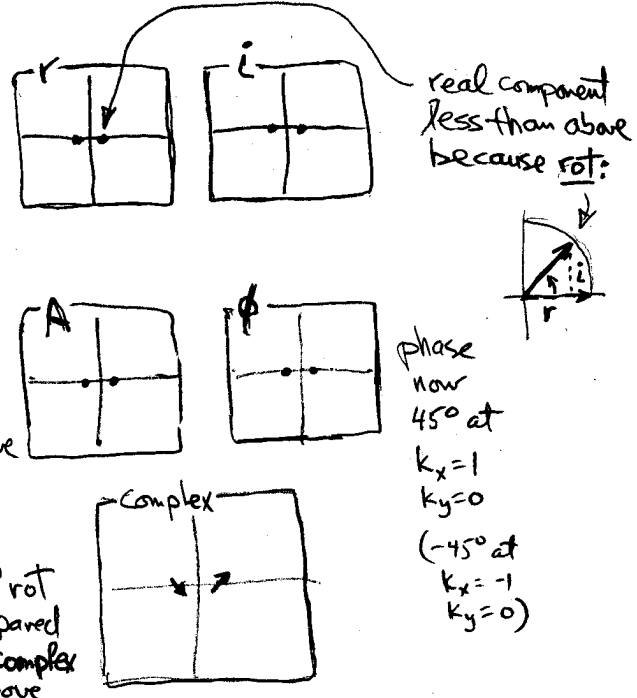 r
i
real component
less than above
because rot:
i
r
A
φ
phase
now
45° at
kx=1
ky=0
(-45° at
kx=-1
ky=0)
complex
rot
complex